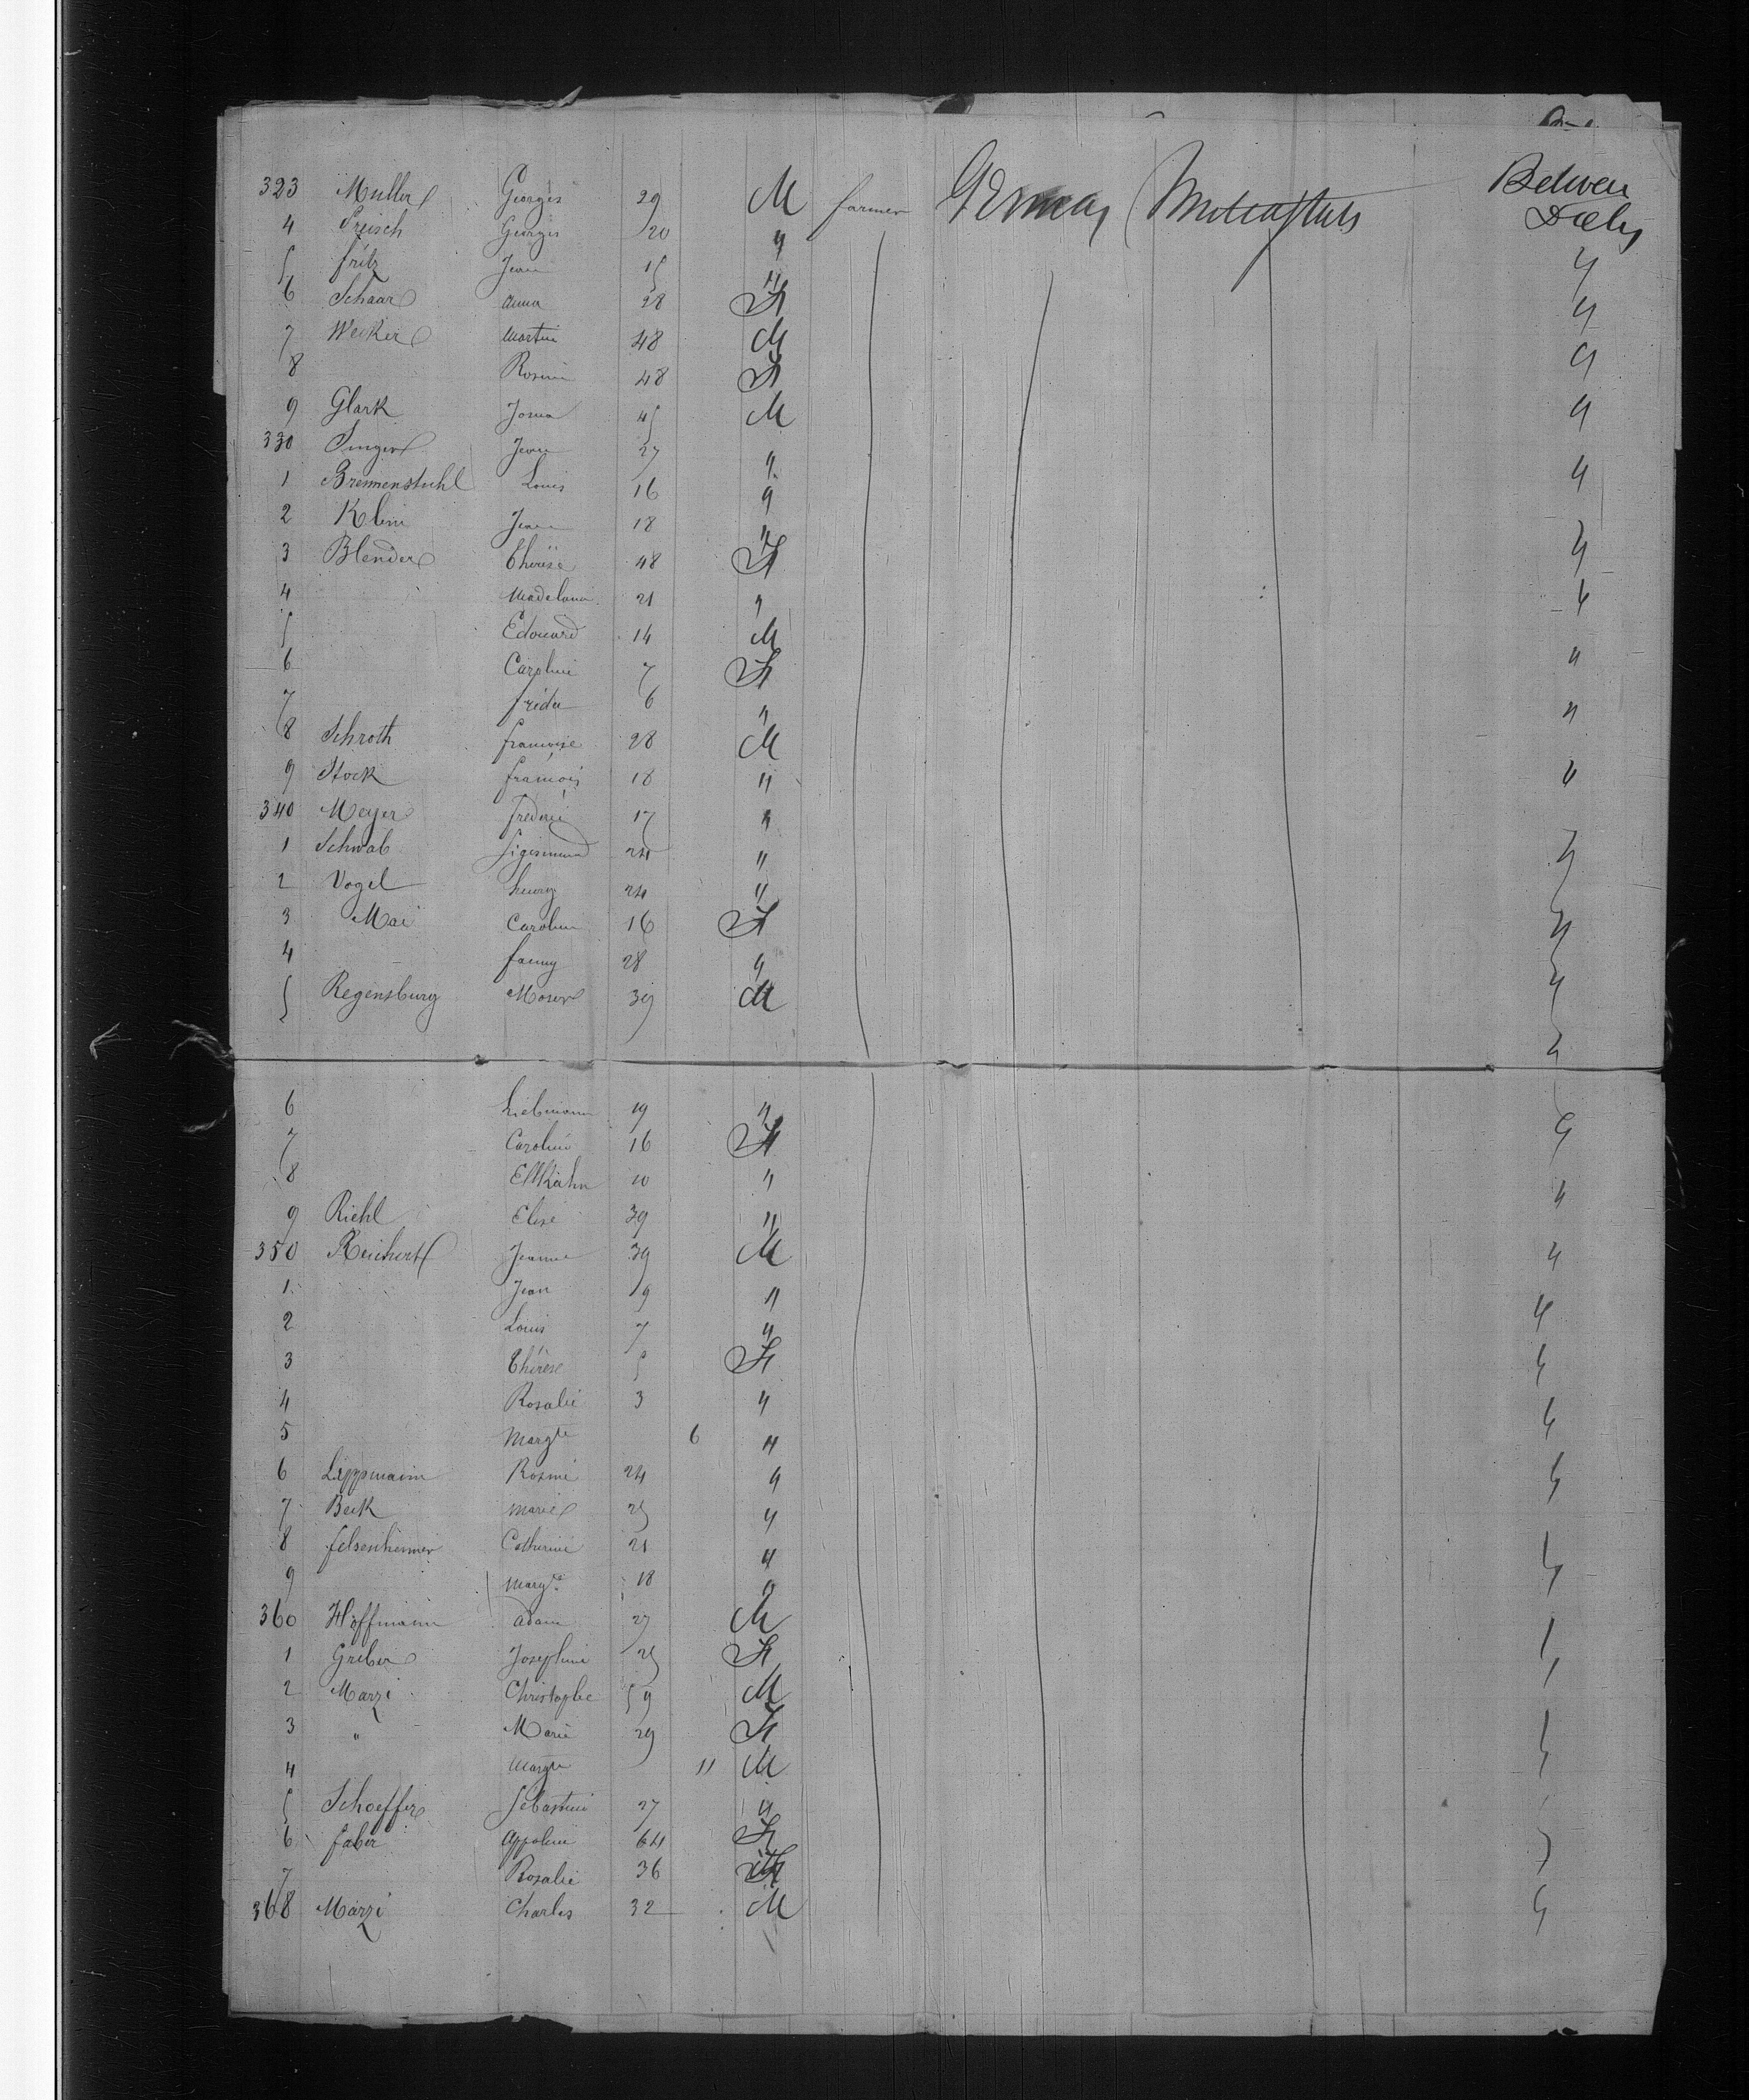 323 Muller Georges 29 M farmer Germany United States Between Decks
4 Preisch Georges 20 "
5 fritz Jean 15 " "
6 Schaar anna 28 F "
7 Wecker Martin 48 M "
8 Rosine 48 F
9 Glark 45 M "
330 Singer Jean 27 " "
1 Brennenstuhl Louis 16 "
2 Klein Jean 18 " "
3 Blender Thérèse 48 F
4 Madelaine 21 " "
5 Edouard 14 M
6 Caroline 7 F "
7 frida 6 " "
8 Schroth françoise 28 M
9 Stock françois 18 " "
340 Meyer frederic 17 "
1 Schwab Sigismund 24 " "
2 Vogel henry 24 "
3 Mai Caroline 16 F "
4 fanny 28 " "
5 Regensburg Moser 39 M "
6 Liebmann 19 " "
7 Caroline 16 F
8 Ellkahn 10 " "
9 Riehl Elise 39 "
350 Reichert Jeanne 39 M "
1 Jean 9 " "
2 Louis 7 "
3 Thérèse 5 F "
4 Rosalie 3 " "
5 Margte 6 "
6 Lippmann Rosine 24 " "
7 Beck Marie 25 "
8 felsenheimer Catherine 21 " "
9 Margte 18 "
360 Hoffmann adam 27 M "
1 Greber Josephine 25 F "
2 Marzi Christophe 59 M
3 " Marie 29 F "
4 Margte 11 M
5 Schoeffer Sebastien 27 "
6 faber Appoline 64 F "
7 Rosalie 36 F
368 Marzi Charles 32 M "